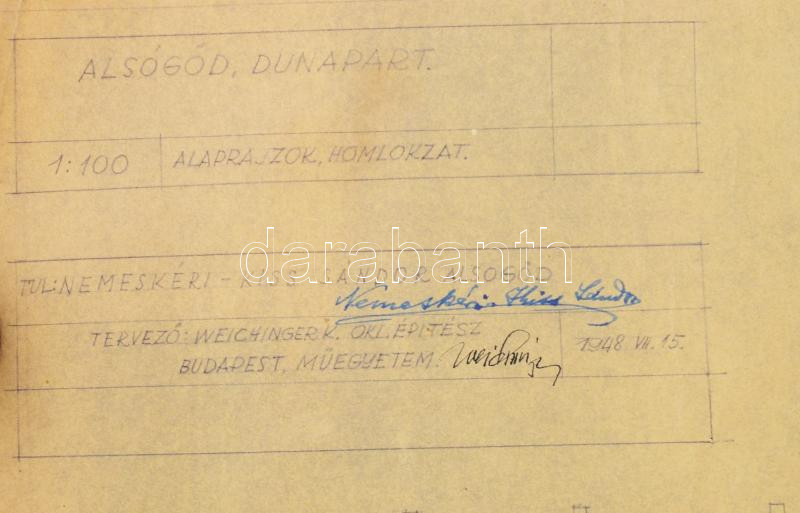 ALSÓGÓD, DUNAPART.
1:100 ALAPRAJZOK, HOMLOKZAT.
darabanth
TUL: NEMESKÉRI - KISS SÁNDOR ALSÓGÓD
Nemeskéri-Kiss Sándor
TERVEZŐ: WEICHINGER K. OKL. ÉPITÉSZ
BUDAPEST, MŰEGYETEM. Weichinger
1948. VII. 15.